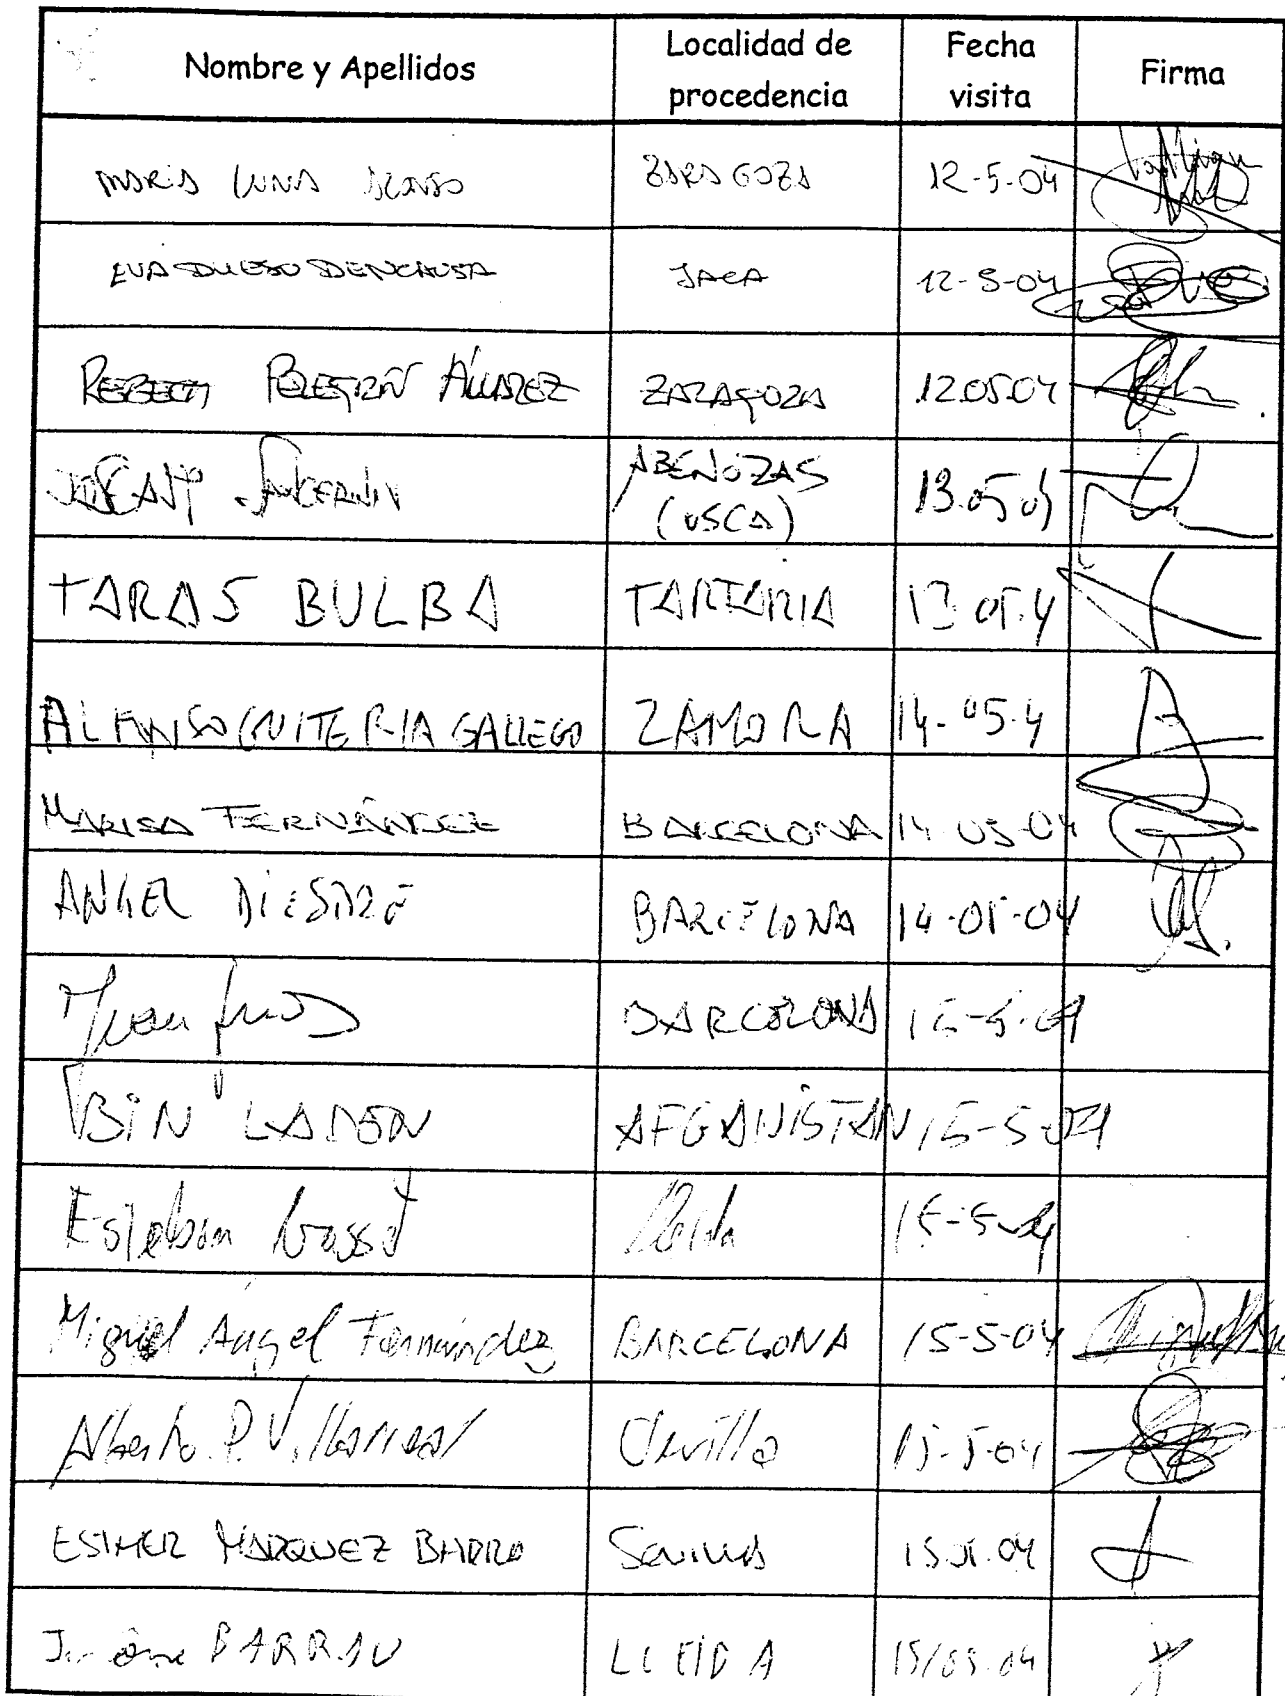 Nombre y Apellidos Localidad de procedencia Fecha visita Firma
MARIA LUNA ALONSO ZARAGOZA 12-5-04
EVA DUESO DENCAUSA JACA 12-5-04
REBECA PELEGRÍN ÁLVAREZ ZARAGOZA 12.05.04
ABENOZAS
(USCA) 13.05.04
TARAS BULBA TARTARIA 13.05.4
ALFONSO QUITERIA GALLEGO ZAMORA 14-05-4
MARISA FERNÁNDEZ BARCELONA 14-05-04
ANGEL BARCELONA 14-05-04
BARCELONA 15-5-04
BIN LADEN AFGANISTAN 15-5-04
Esteban 15-5-04
Miguel Angel Fernández BARCELONA 15-5-04
Alberto P. Villarreal Sevilla 15-5-04
ESTHER MARQUEZ Sevilla 15.05.04
BARRAU LLEIDA 15/05.04